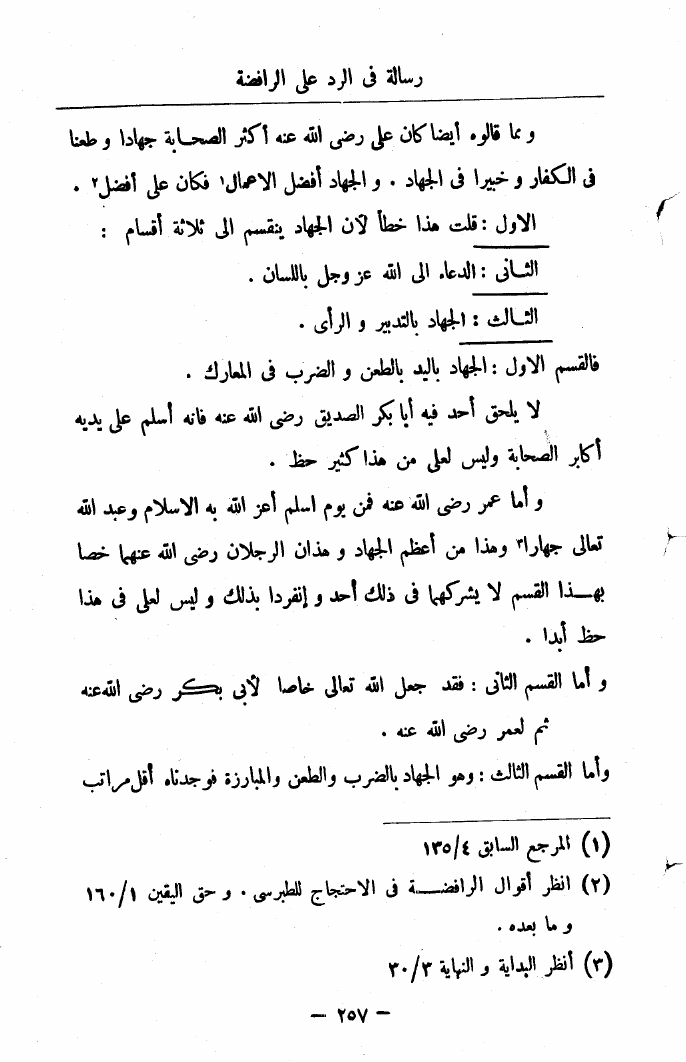 رسالة فى الرد على الرافضة
و مما قالوه أيضا كان على رضى الله عنه أكثر الصحابة جهادا و طعنا
فى الكفار و خبيرا فى الجهاد . و الجهاد أفضل الاعمال١ فكان على أفضل٢ .
الاول : قلت هذا خطأ لأن الجهاد ينقسم الى ثلاثة أقسام :
الثانى : الدعاء الى الله عز وجل باللسان .
الثالث : الجهاد بالتدبير و الرأى .
فالقسم الاول : الجهاد باليد بالطعن و الضرب فى المعارك .
لا يلحق أحد فيه أبا بكر الصديق رضى الله عنه فانه أسلم على يديه
أكابر الصحابة وليس لعلى من هذا كثير حظ .
و أما عمر رضى الله عنه فمن يوم اسلم أعز الله به الاسلام وعبد الله
تعالى جهارا٣ وهذا من أعظم الجهاد و هذان الرجلان رضى الله عنهما خصا
بهذا القسم لا يشركهما فى ذلك أحد و إنفردا بذلك و ليس لعلى فى هذا
حظ أبدا .
و أما القسم الثانى : فقد جعل الله تعالى خاصا لأبى بكر رضى الله عنه
ثم لعمر رضى الله عنه .
وأما القسم الثالث : وهو الجهاد بالضرب والطعن والمبارزة فوجدناه أقل مراتب
(١) المرجع السابق ١٣٥/٤
(٢) انظر أقوال الرافضة فى الاحتجاج للطبرسى . و حق اليقين ١٦٠/١
و ما بعده .
(٣) أنظر البداية و النهاية ٣٠/٣
– ٢٥٧ –